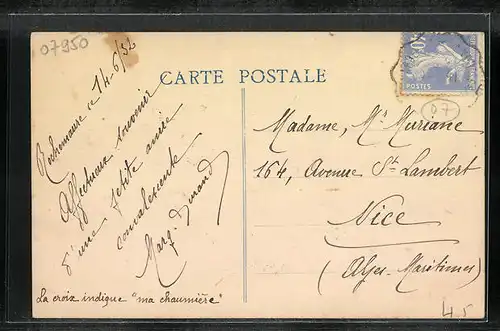 07950
CARTE POSTALE
POSTES
07
Rochemaure le 14-6/32
Affectueux souvenir
d'une petite amie
convalescente
Marg. Durand
La croix indique "ma chaumière"
Madame, Mr Muriane
164, Avenue St Lambert
Nice
(Alpes-Maritimes)
45